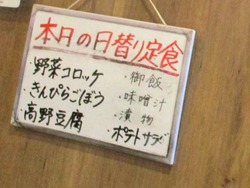 本日の日替り定食
・野菜コロッケ
・きんぴらごぼう
・高野豆腐
・御飯
・味噌汁
・漬物
・ポテトサラダ